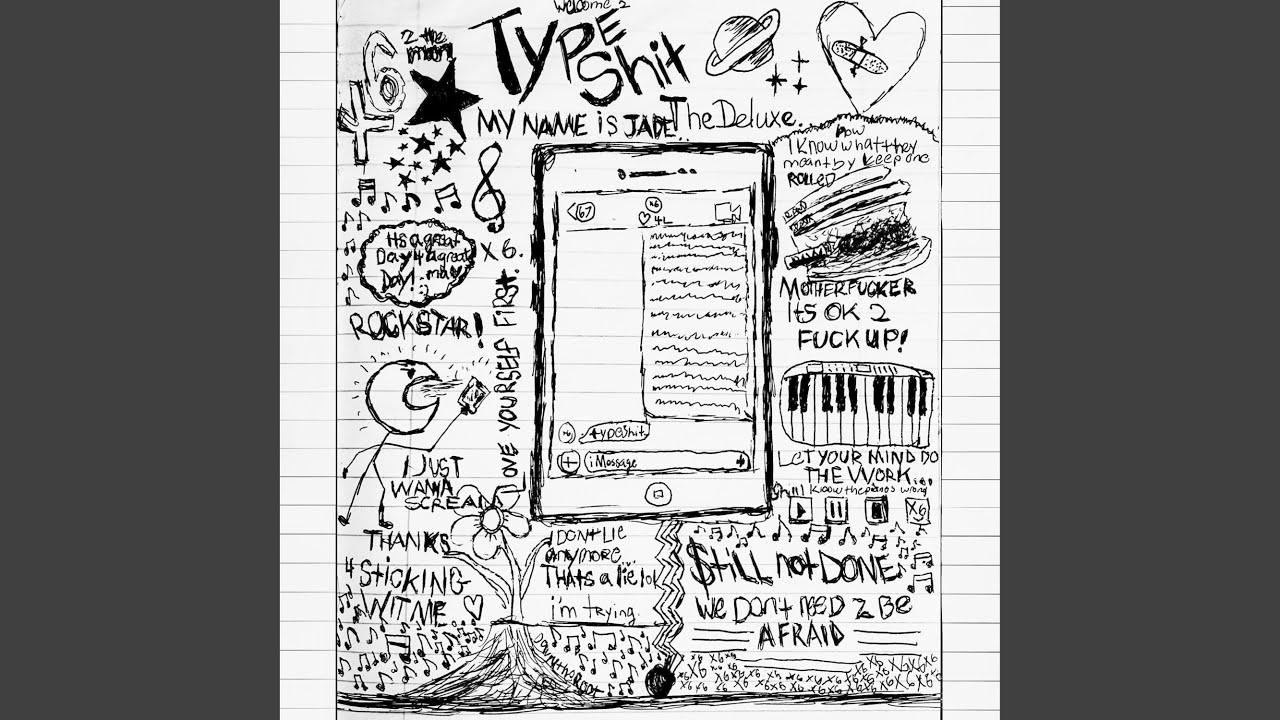 Welcome 2
TYPE
Shit
2 the
moon!
46
MY NAME is JADE.. The Deluxe.
now
I Know what they
meant by keep one
ROLLED
Its a great
Day 4 a great
Day! :)
x6.
LOVE YOURSELF FIRST.
<67
x6
♡ 4L
MOTHERFUCKER
Its OK 2
FUCK UP!
ROCKSTAR!
x6
typeshit
+
iMessage
I JUST
WANNA
SCREAM
LET YOUR MIND DO
THE WORK...
I know the piano's wrong
X6
THANKS
4 STICKING
WIT ME ♡
I DONT LIE
anymore
THATS a lie lol
i'm trying.
Still not DONE
We Dont need 2 BE
AFRAID
x6 x6 x6 x6 x6 x6